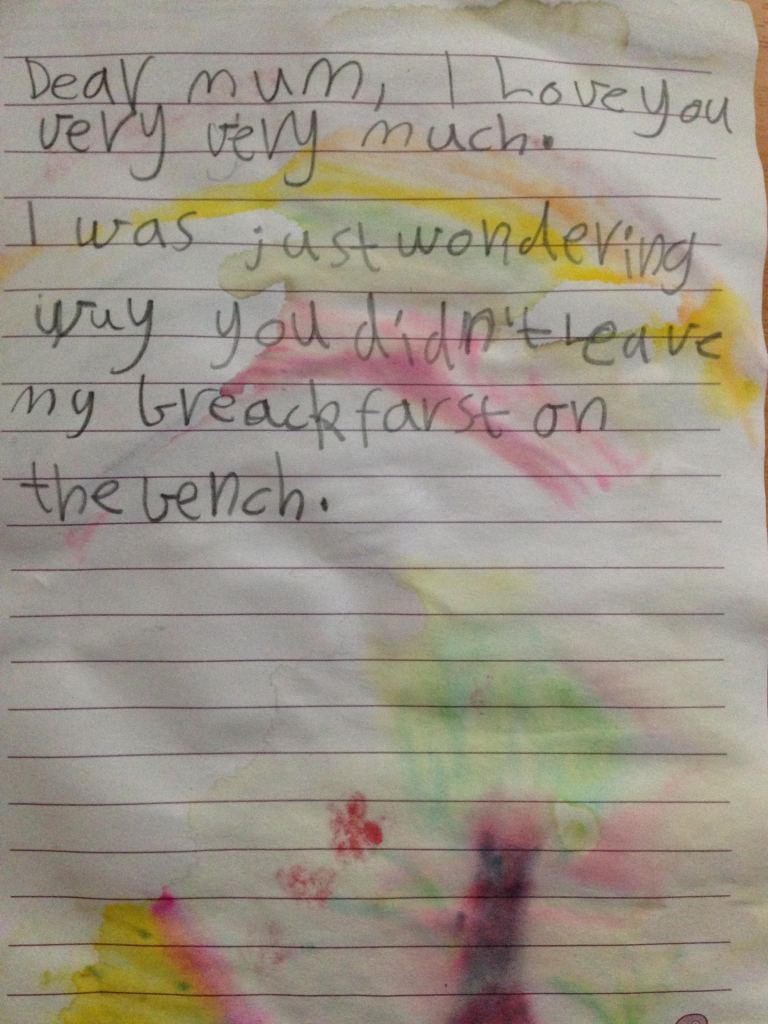 Dear mum, I Love you
very very much.
I was just wondering
wuy you didn't Leave
my breackfarst on
the bench.